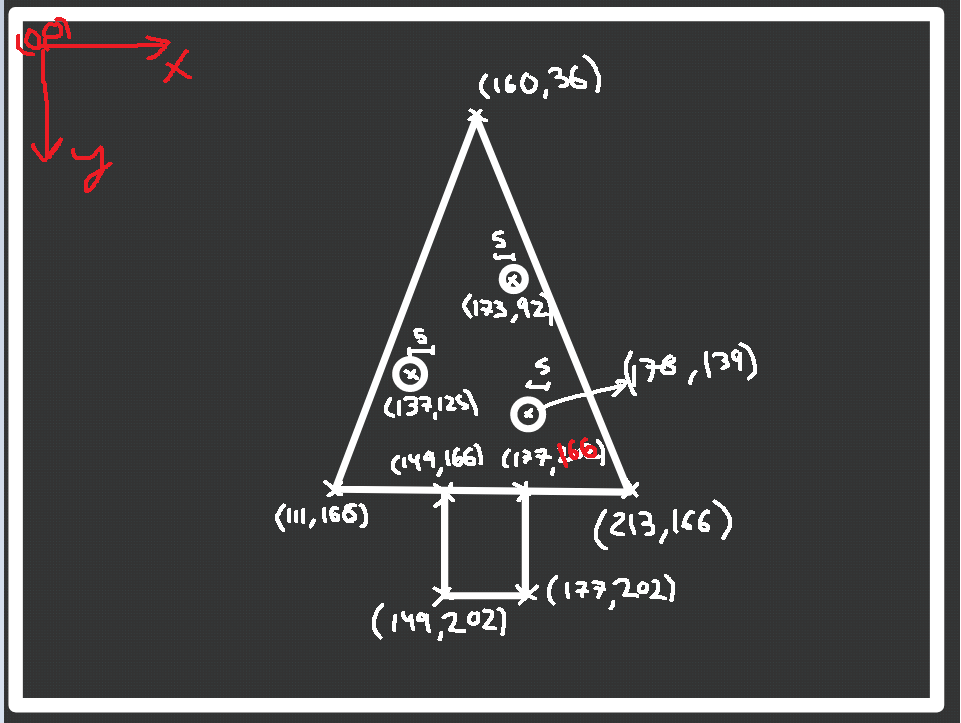 (0,0)
x
y
(160,36)
5
(173,92)
5
(137,125)
5
(178,139)
(149,166) (177,166)
(111,166)
(213,166)
(177,202)
(149,202)